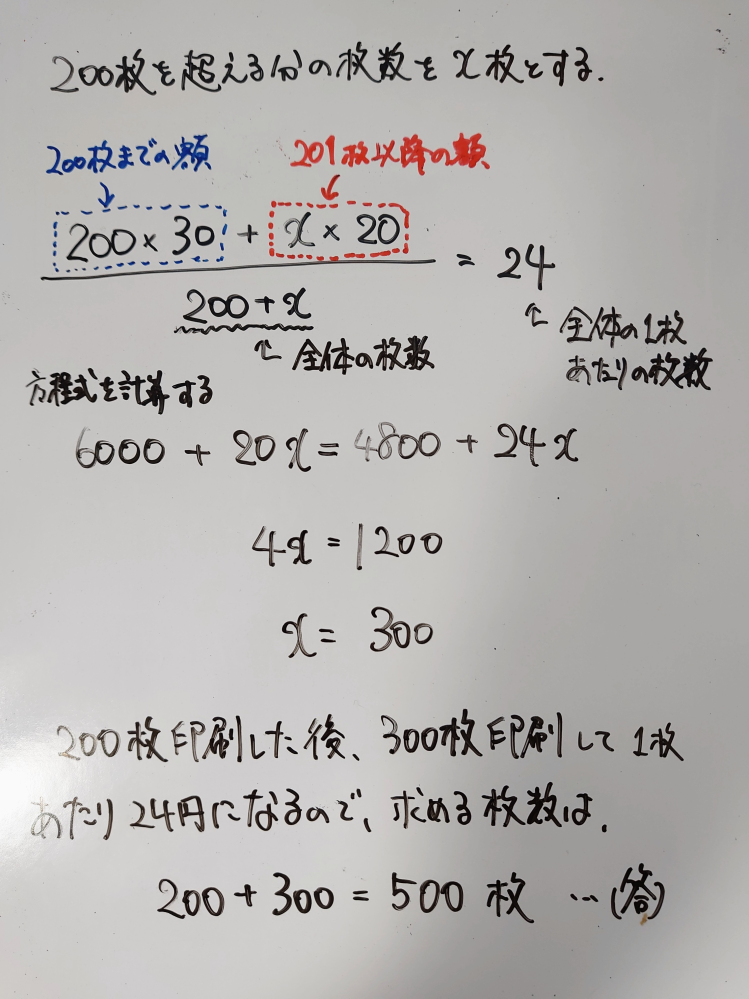 200枚を超える分の枚数を x枚とする.
200枚までの額
201枚以降の額
200×30 + x × 20
200+x
= 24
← 全体の枚数
← 全体の1枚
あたりの枚数
方程式を計算する
6000 + 20x = 4800 + 24x
4x = 1200
x = 300
200枚印刷した後、300枚印刷して1枚
あたり24円になるので、求める枚数は.
200 + 300 = 500 枚 …(答)